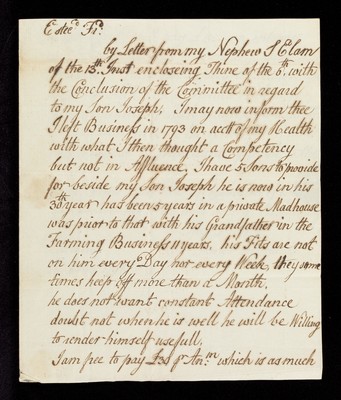 Esteed Frd.
by Letter from my Nephew S Elam
of the 13th. Inst encloseing Thine of the 6th. with
the Conclusion of the Committee in regard
to my Son Joseph, I may now inform thee
I left Business in 1793 on acctt of my Health
with what I then thought a Competency
but not in Affluence, I have 5 Sons to provide
for beside my Son Joseph he is now in his
30th year has been 5 years in a private Madhouse
was prior to that with his Grandfather in the
Farming Business 11 years, his Fits are not
on him every Day nor every Week, they some
times keep off more than a Month,
he does not want constant Attendance
doubt not when he is well he will be Willing
to render himself usefull.
I am free to pay £ ℔ Ann. which is as much